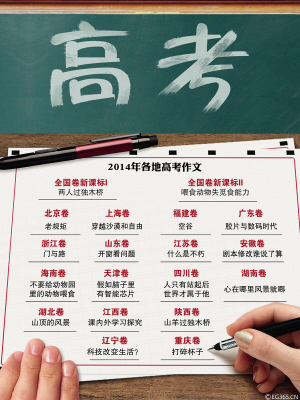 高考
2014年各地高考作文
全国卷新课标I
全国卷新课标II
两人过独木桥
喂食动物失觅食能力
北京卷
上海卷
福建卷
广东卷
老规矩
穿越沙漠和自由
空谷
胶片与数码时代
浙江卷
山东卷
江苏卷
安徽卷
门与路
开窗看问题
什么是不朽
剧本修改谁说了算
海南卷
天津卷
四川卷
湖南卷
不要给动物园
里的动物喂食
假如脑子里
有智能芯片
人只有站起后
世界才属于他
心在哪里风景就哪
湖北卷
江西卷
陕西卷
山顶的风景
课内外学习探究
山羊过独木桥
辽宁卷
重庆卷
科技改变生活?
打碎杯子
©EG365.CN